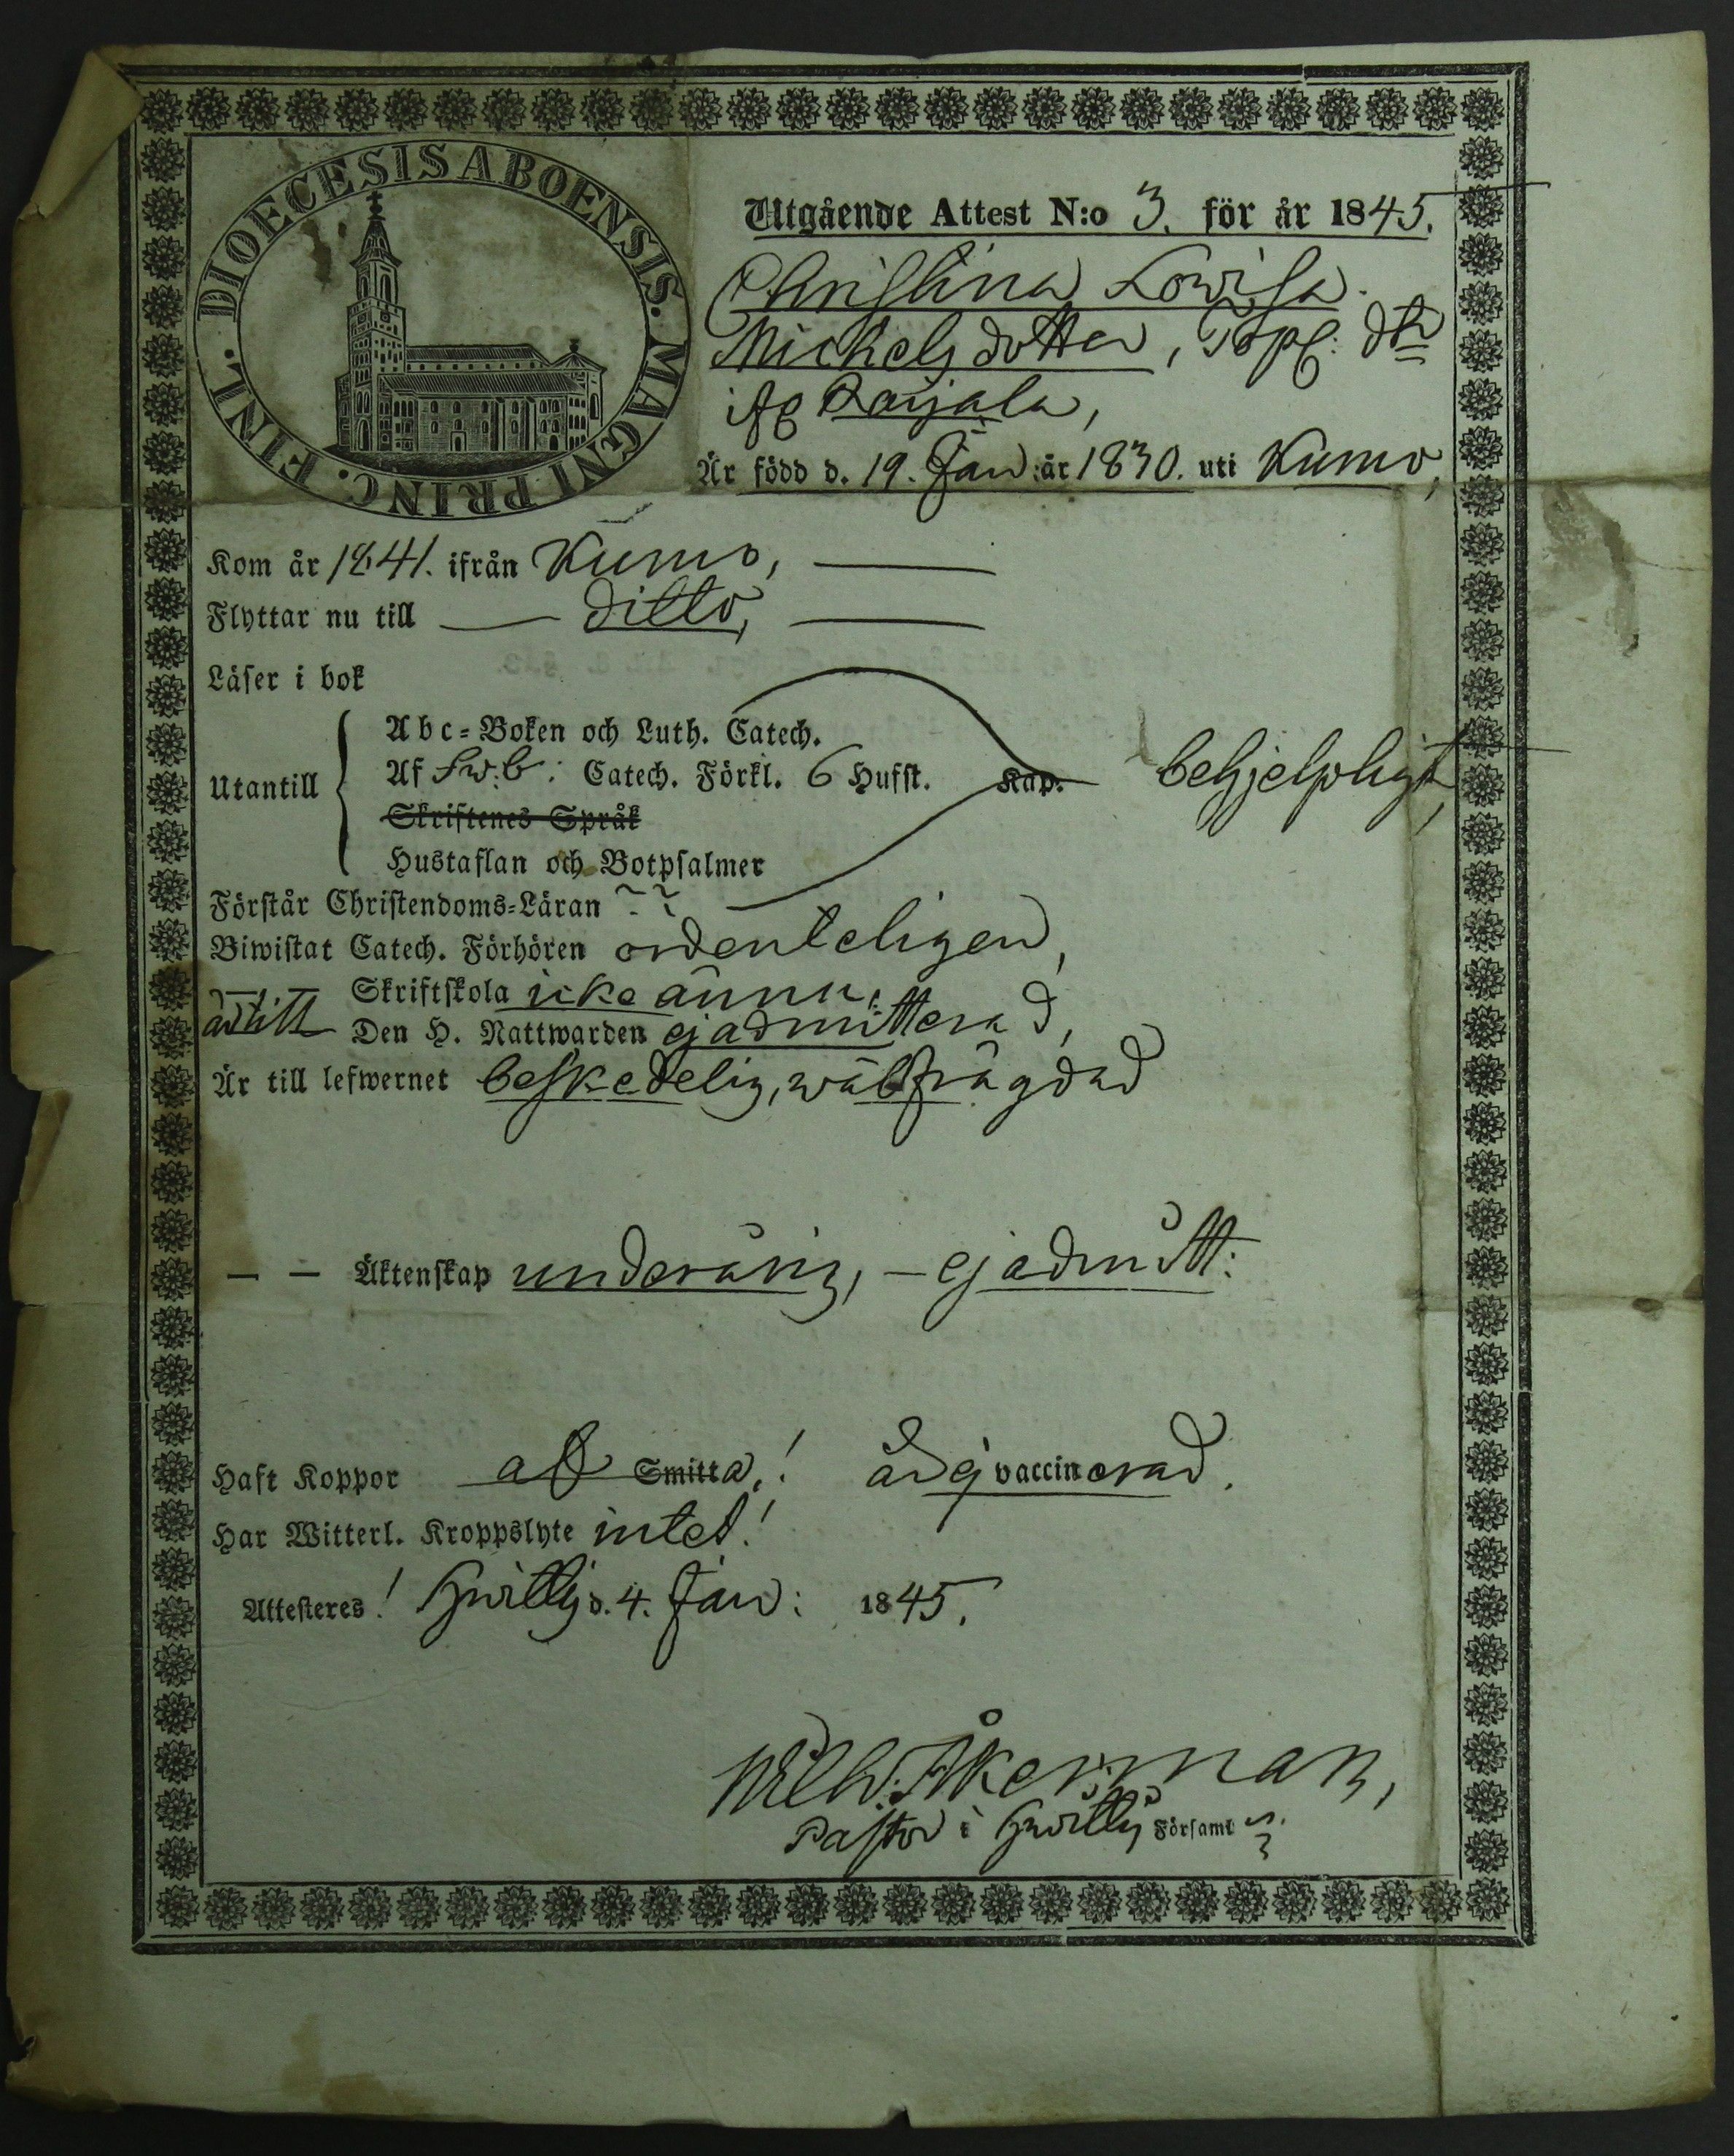 DIOECESIS ABOENSIS. MAGNI PRINC. FINL.
Utgående Attest N:o 3. för år 1845.
Christina Lovisa
Michelsdotter, Torp: dr
ifr Karjala,
Är född d. 19. Jan: år 1830. uti Kumo,
Kom år 1841. ifrån Kumo,
Flyttar nu till ditto,
Läser i bok
Abc-Boken och Luth. Catech.
Utantill Af Sw:b: Catech. Förkl. 6 Hufst. Kap. behjelpligt,
Skriftenes Språk
Hustaflan och Botpsalmer
Förstår Christendoms-Läran
Biwistat Catech. Förhören ordenteligen,
Skriftskola icke ännu,
Den H. Nattwarden ej admitterad,
Är till lefwernet beskedelig, wälfrägdad
— — Äktenskap underårig, – ej admitt:
Haft Koppor af Smitta,! är ej vaccinerad.
Har Witterl. Kroppslyte intet!
Attesteres! Hvittis d. 4. Jan: 1845.
Wilh: Åkerman,
Pastor i Hvittis Församl